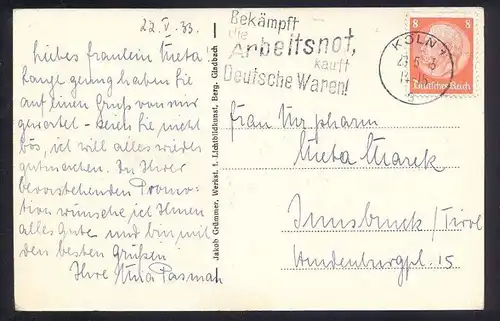 22. V. 33.
Liebes Fräulein Meta!
Lange genug haben Sie
auf einen Gruß von mir
gewartet – Seien Sie nicht
bös, ich will alles wieder
gutmachen. Zu Ihrer
bevorstehenden Promo-
tion wünsche ich Ihnen
alles Gute und bin mit
den besten Grüßen
Ihre
Jakob Grümmer, Werkst. f. Lichtbildkunst, Berg. Gladbach
Bekämpft
die
Arbeitsnot,
kauft
Deutsche Waren!
KÖLN 1
8 8
Deutsches Reich
Frau Mr. pharm
Meta Marek
Innsbruck / Tirol
Hindenburgpl. 15